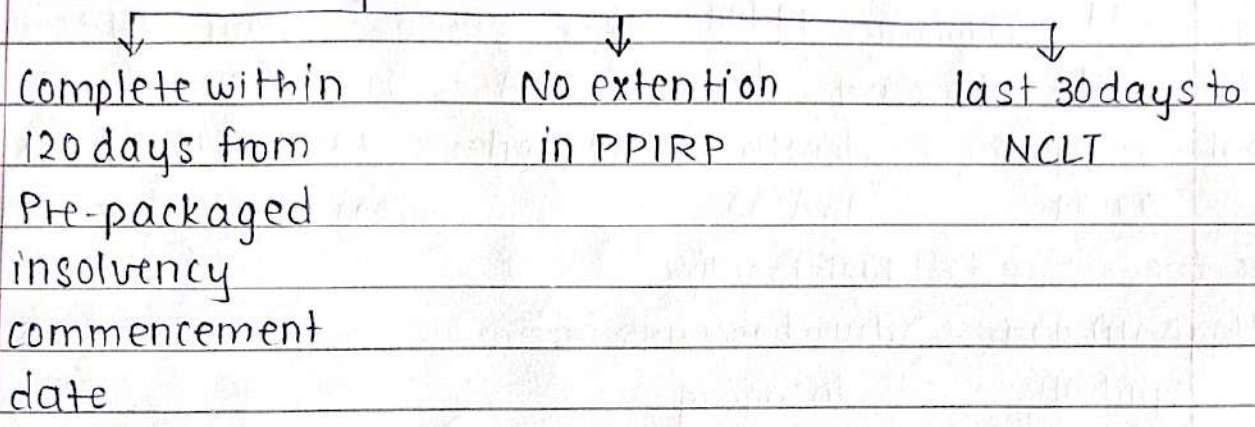 Complete within
120 days from
Pre-packaged
insolvency
commencement
date
No extention
in PPIRP
last 30 days to
NCLT